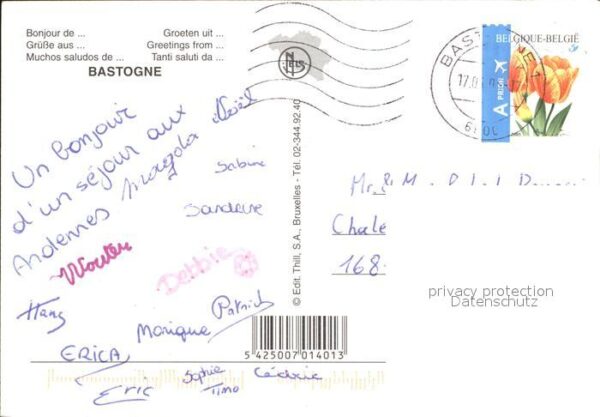 Bonjour de ...
Groeten uit ...
Grüße aus ...
Greetings from ...
Muchos saludos de ...
Tanti saluti da ...
BASTOGNE
NELS
BELGIQUE-BELGIË
A PRIOR
BASTOGNE 1
6600
Un bonjour
d'un séjour aux
Ardennes
Magda
Noël
Sabine
Sandrine
Wouter
Debbie
Hans
Patrick
Monique
ERICA
Eric
Sophie
Timo
Cédric
© Edit. Thill, S.A., Bruxelles - Tél. 02-344.92.40
5 425007 014013
Mr. & M
Chale
168
privacy protection
Datenschutz